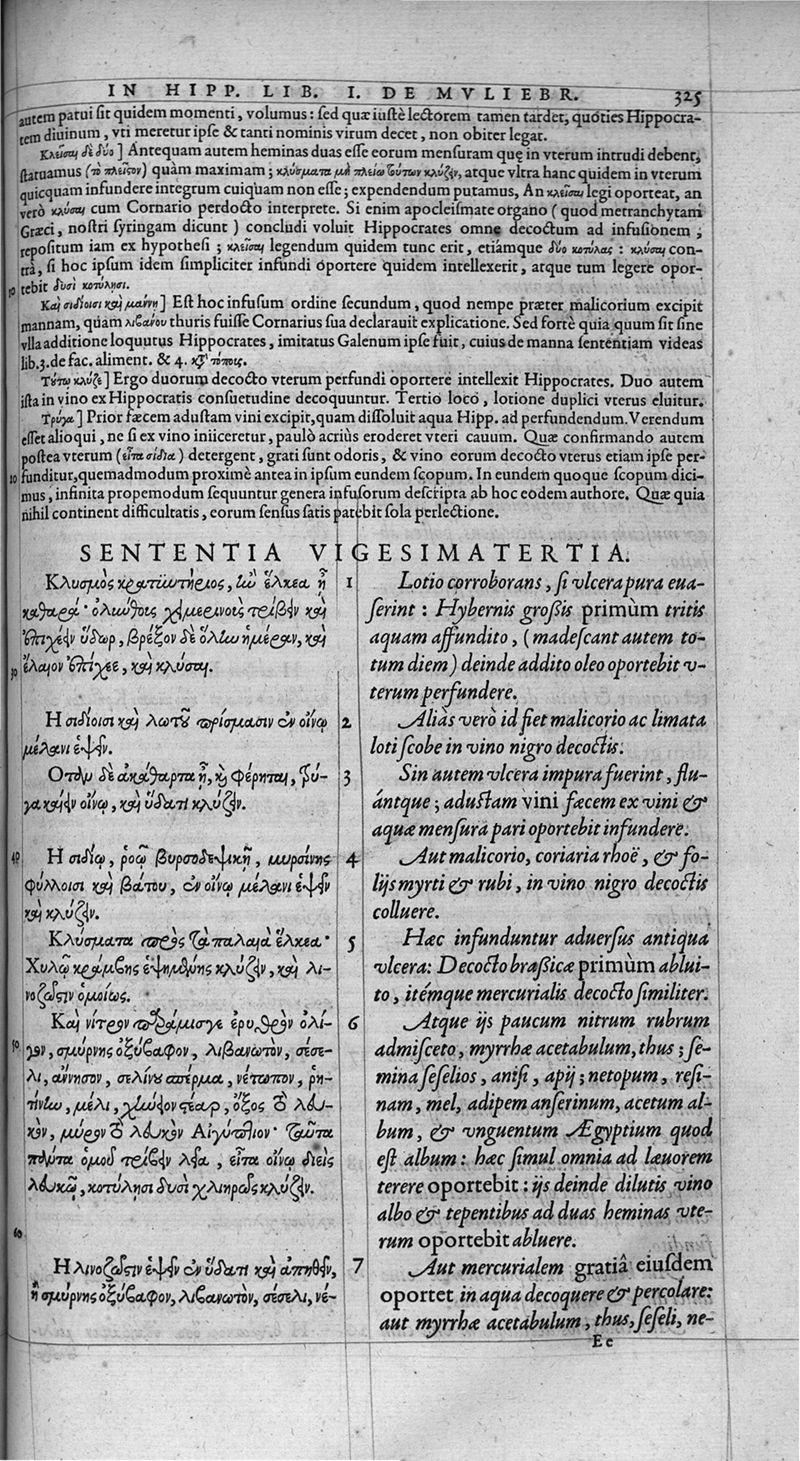 IN HIPP. LIB. I. DE MVLIEBR. 325
autem patui ſit quidem momenti, volumus: ſed quæ iuſtè lectorem tamen tardet, quoties Hippocra-
tem diuinum, vti meretur ipſe & tanti nominis virum decet, non obiter legat.
Κλεῖσαι δὲ δύο] Antequam autem heminas duas eſſe eorum menſuram quę in vterum intrudi debent,
ſtatuamus (τὸ πλεῖςον) quàm maximam; κλύσματα μὴ πλείω τούτων κλύζειν, atque vltra hanc quidem in vterum
quicquam infundere integrum cuiquam non eſſe; expendendum putamus, An κλεῖσαι legi oporteat, an
verò κλύσαι cum Cornario perdocto interprete. Si enim apocleiſmate organo (quod metranchytam
Græci, noſtri ſyringam dicunt) concludi voluit Hippocrates omne decoctum ad infuſionem,
repoſitum iam ex hypotheſi; κλεῖσαι legendum quidem tunc erit, etiámque δύο κοτύλας: κλύσαι con-
trà, ſi hoc ipſum idem ſimpliciter infundi oportere quidem intellexerit, atque tum legere opor-
10 tebit δυσὶ κοτύλησι.
Καὶ σιδίοισι καὶ μάννῃ] Eſt hoc infuſum ordine ſecundum, quod nempe præter malicorium excipit
mannam, quàm λιβανου thuris fuiſſe Cornarius ſua declarauit explicatione. Sed fortè quia quum ſit ſine
vlla additione loquutus Hippocrates, imitatus Galenum ipſe fuit, cuius de manna ſententiam videas
lib. 3. de fac. aliment. & 4. κατὰ τόποις.
Τούτῳ κλύζε] Ergo duorum decocto vterum perfundi oportere intellexit Hippocrates. Duo autem
iſta in vino ex Hippocratis conſuetudine decoquuntur. Tertio loco, lotione duplici vterus eluitur.
Τρύγα] Prior fæcem aduſtam vini excipit, quam diſſoluit aqua Hipp. ad perfundendum. Verendum
eſſet alioqui, ne ſi ex vino iniiceretur, paulò acriùs eroderet vteri cauum. Quæ confirmando autem
poſtea vterum (εἶτα σίδια) detergent, grati ſunt odoris, & vino eorum decocto vterus etiam ipſe per-
funditur, quemadmodum proximè antea in ipſum eundem ſcopum. In eundem quoque ſcopum dici-
mus, infinita propemodum ſequuntur genera infuſorum deſcripta ab hoc eodem authore. Quæ quia
nihil continent difficultatis, eorum ſenſus ſatis patebit ſola perlectione.
SENTENTIA VIGESIMATERTIA.
Κλυσμὸς κρατιωτήριος, ἢν ἕλκεα ᾖ
καθαρά· ὀλύνθοις χειμερινοὺς τρίβειν καὶ
ἐπιχέειν ὕδωρ, βρέξον δὲ ὅλην ἡμέραν, καὶ
30 ἔλαιον ἐπίχεε, καὶ κλύσαι.
Η σιδίοισι καὶ λωτοῦ πρίσμασιν ἐν οἴνῳ
μέλανι ἑψεῖν.
Οταν δὲ ἀκάθαρτα ᾖ, καὶ φέρηται, τρύ-
γα καίειν οἴνῳ, καὶ ὕδατι κλύζειν.
40 Η σιδίῳ, ῥοῷ βυρσοδεψικῇ, μυρσίνης
φύλλοισι καὶ βάτου, ἐν οἴνῳ μέλανι ἑψεῖν
καὶ κλύζειν.
Κλύσματα πρὸς τὰ παλαιὰ ἕλκεα·
Χυλῷ κράμβης ἑψημένης κλύζειν, καὶ λι-
νοζώστιν ὁμοίως.
Καὶ νίτρον παράμισγε ἐρυθρὸν ὀλί-
50 γον, σμύρνης ὀξύβαφον, λιβανωτὸν, σέσε-
λι, ἄννησον, σελίνου σπέρμα, νέτωπον, ῥη-
τίνην, μέλι, χήνειον στέαρ, ὄξος τὸ λευ-
κὸν, μύρον τὸ λευκὸν Αἰγύπτιον· ταῦτα
πάντα ὁμοῦ τρίβειν λεῖα, εἶτα οἴνῳ διεὶς
λευκῷ, κοτύλησι δυσὶ χλιηρῶς κλύζειν.
60
Η λινοζῶστιν ἑψεῖν ἐν ὕδατι καὶ ἀπηθεῖν,
ἢ σμύρνης ὀξύβαφον, λιβανωτὸν, σέσελι, νέ-
1 Lotio corroborans, ſi vlcera pura eua-
ſerint: Hybernis groſsis primùm tritis
aquam affundito, (madeſcant autem to-
tum diem) deinde addito oleo oportebit v-
terum perfundere.
2 Aliàs verò id fiet malicorio ac limata
loti ſcobe in vino nigro decoctis.
3 Sin autem vlcera impura fuerint, flu-
ántque; aduſtam vini fæcem ex vini &
aquæ menſura pari oportebit infundere.
4 Aut malicorio, coriaria rhoë, & fo-
lijs myrti & rubi, in vino nigro decoctis
colluere.
5 Hæc infunduntur aduerſus antiqua
vlcera: Decocto braſsicæ primùm ablui-
to, itémque mercurialis decocto ſimiliter.
6 Atque ijs paucum nitrum rubrum
admiſceto, myrrhæ acetabulum, thus; ſe-
mina ſeſelios, aniſi, apij; netopum, reſi-
nam, mel, adipem anſerinum, acetum al-
bum, & vnguentum Ægyptium quod
eſt album: hæc ſimul omnia ad læuorem
terere oportebit: ijs deinde dilutis vino
albo & tepentibus ad duas heminas vte-
rum oportebit abluere.
7 Aut mercurialem gratiâ eiuſdem
oportet in aqua decoquere & percolare:
aut myrrhæ acetabulum, thus, ſeſeli, ne-
Ee